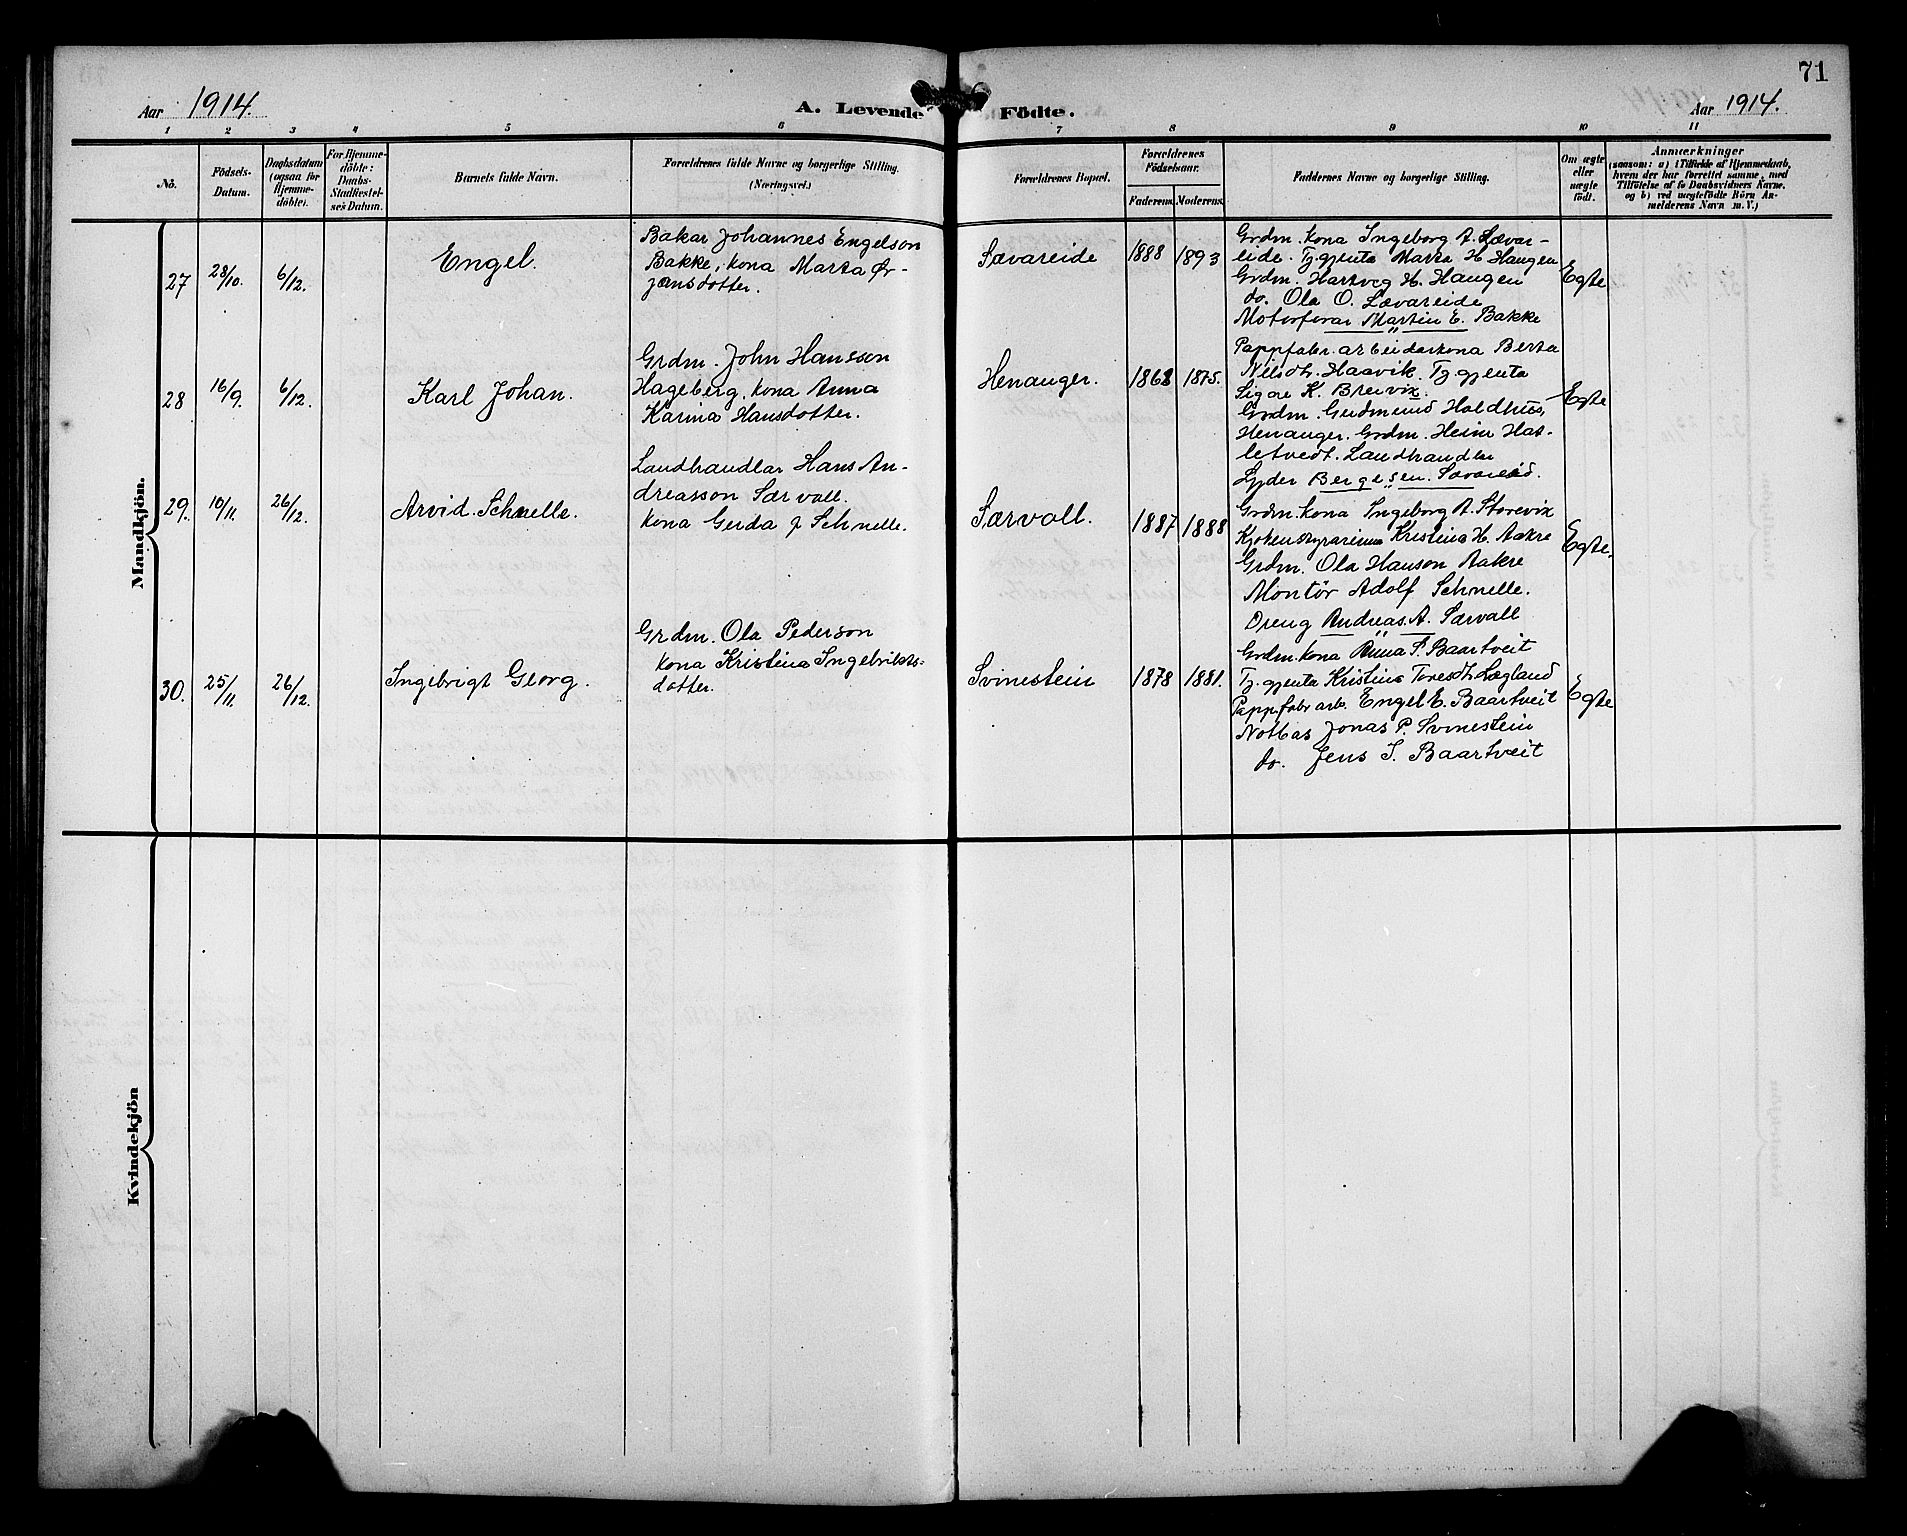 71
Aar 1914.
A. Levende Födte.
Aar 1914.
1 2 3 4 5 6 7 8 9 10 11
No.
Födsels-
Datum.
Daabsdatum
(ogsaa for
Hjemme-
döbte).
For Hjemme-
döbte:
Daabs-
Stadfæstel-
ses Datum.
Barnets fulde Navn.
Forældrenes fulde Navne og borgerlige Stilling.
(Næringsvei.)
Forældrenes Bopæl.
Forældrenes
Födselsaar.
Faderens. Moderens.
Faddernes Navne og borgerlige Stilling.
Om ægte
eller
uægte
födt.
Anmærkninger
(saasom: a) i Tilfælde af Hjemmedaab,
hvem der har forrettet samme, med
Tilföielse af to Daabsvidners Navne,
og b) ved uægtefödte Börn An-
melderens Navn m. V.)
Mandkjön.
27 28/10. 6/12. Engel.
Bakar Johannes Engelson
Bakke, kona Marta Ør-
jansdotter.
Sævareide 1888 1893
Grdm. kona Ingeborg A. Sævar-
eide. Tj. gjenta Marta H. Haugen
Grdm. Hartvig H. Haugen
do. Ola O. Sævareide
Motorførar Martin E. Bakke
Egte
28 16/9. 6/12. Karl Johan.
Grdm. John Hansson
Hageberg, kona Anna
Karina Hansdotter.
Henanger. 1868 1875.
Pappfabr. arbeidarkona Berta
Nilsdtr. Haavik. Tj. gjenta
Signe K. Breivik.
Grdm. Gudmund Holdhus,
Henanger. Grdm. Heine Hat-
letvedt. Landhandlar
Lyder Bergesen. Sævareid.
Egte
29. 10/11. 26/12. Arvid Schnelle.
Landhandlar Hans An-
dreasson Særvoll.
kona Gerda f. Schnelle.
Særvoll. 1887 1888
Grdm. kona Ingeborg A. Storevik
Kjøkenstyrarinna Kristina H. Aakre
Grdm. Ola Hanson Aakre
Montör Adolf Schnelle.
Dreng Andreas A. Særvoll
Egte.
30. 25/11. 26/12. Ingebrigt Georg.
Grdm. Ola Pederson
kona Kristina Ingebrikts-
dotter.
Svinestein 1878 1881.
Grdm. kona Anna P. Baartveit
Tj. gjenta Kristina Toresdtr.
Pappfabr arb. Engel E. Baartveit
Notbas Jonas P. Svinestein
do. Jens I. Baartveit
Egte
Kvindekjön